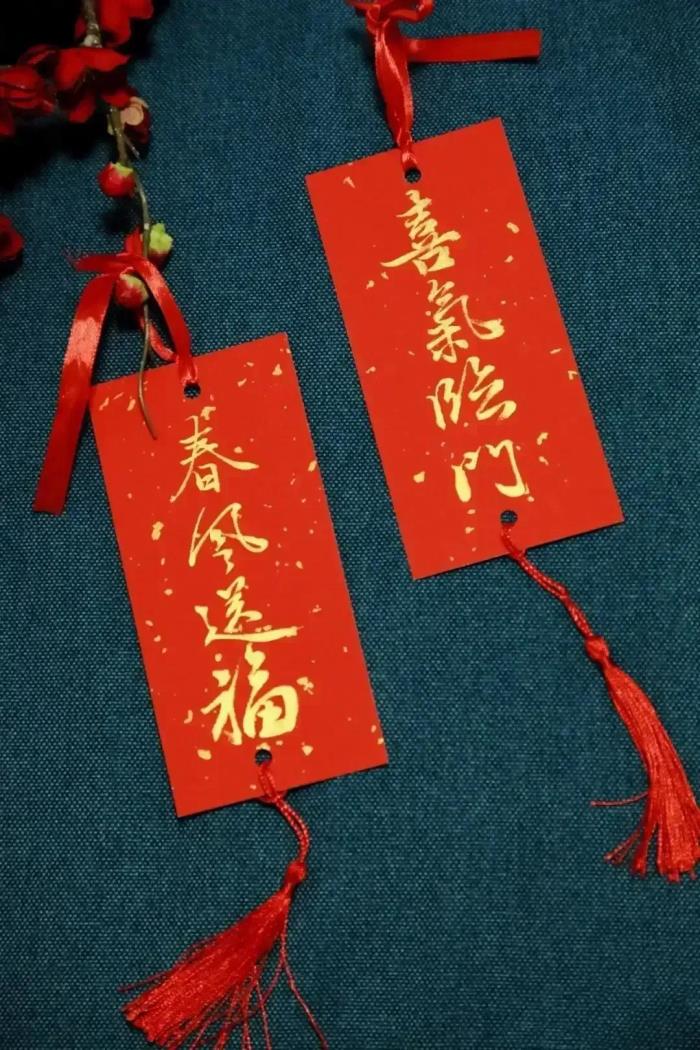 喜氣臨門
春风送福